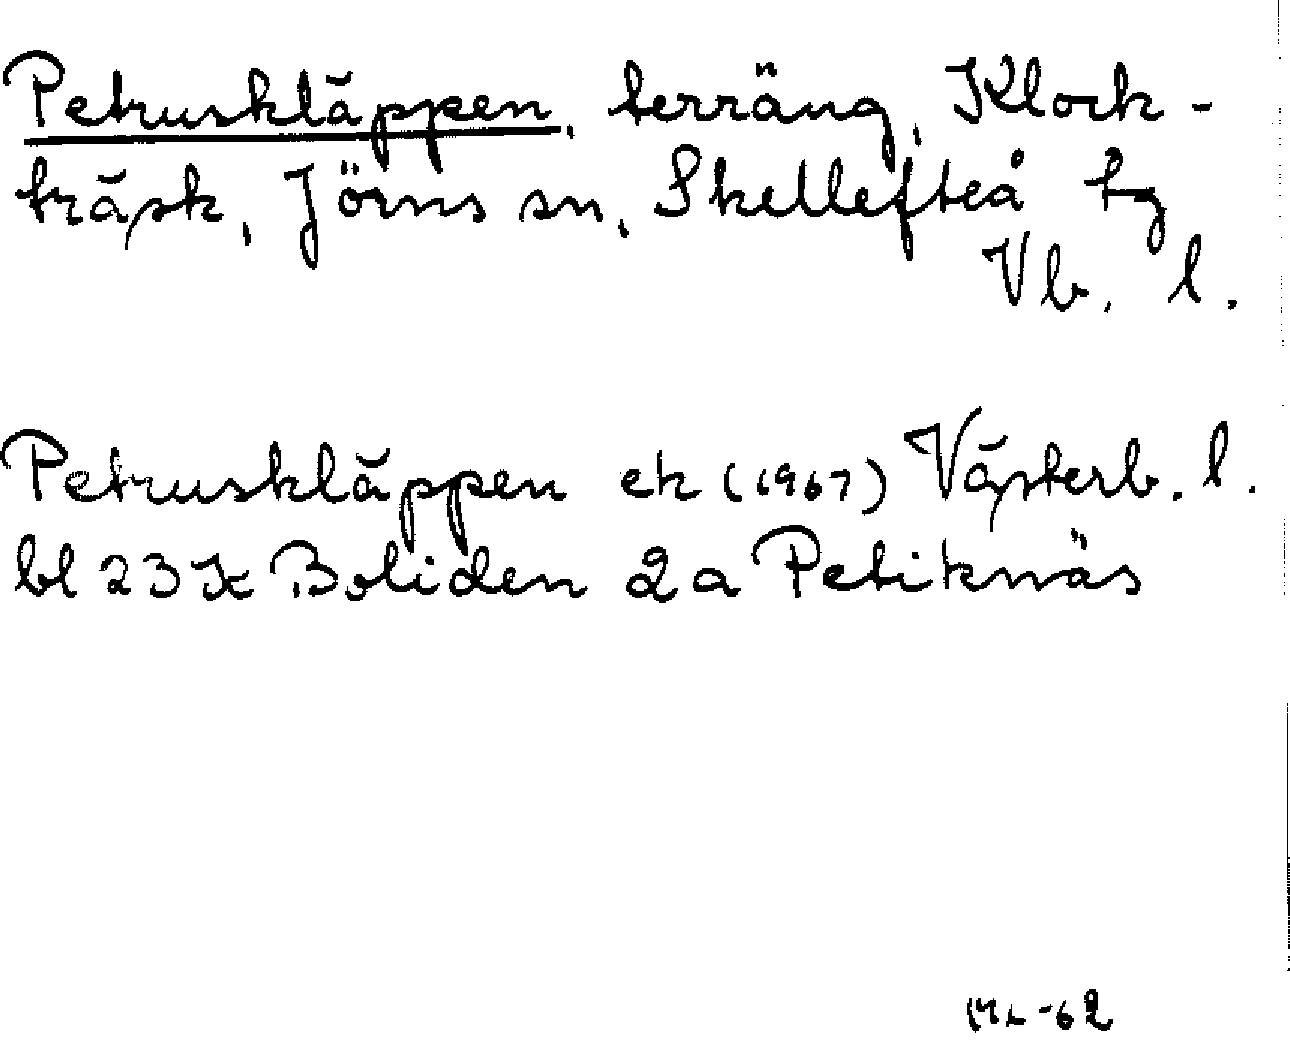 Petruskläppen, terräng, Klock-
träsk, Jörns sn, Skellefteå tg
Vb. l.
Petruskläppen ek (1967) Västerb. l.
bl 23 K Boliden 2a Petiknäs
-62